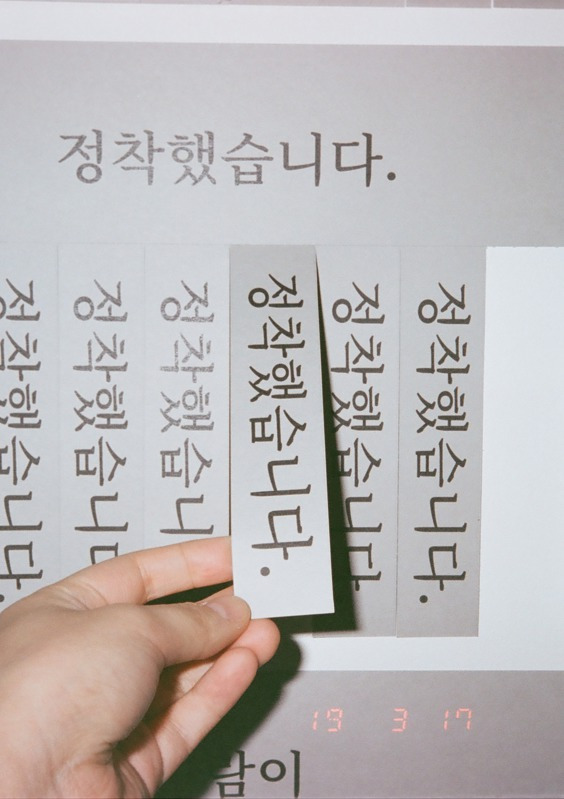 정착했습니다.
정착했습니다.
정착했습니다.
정착했습니
정착했습니다.
정착했습니다
정착했습니다.
19 3 17
람이